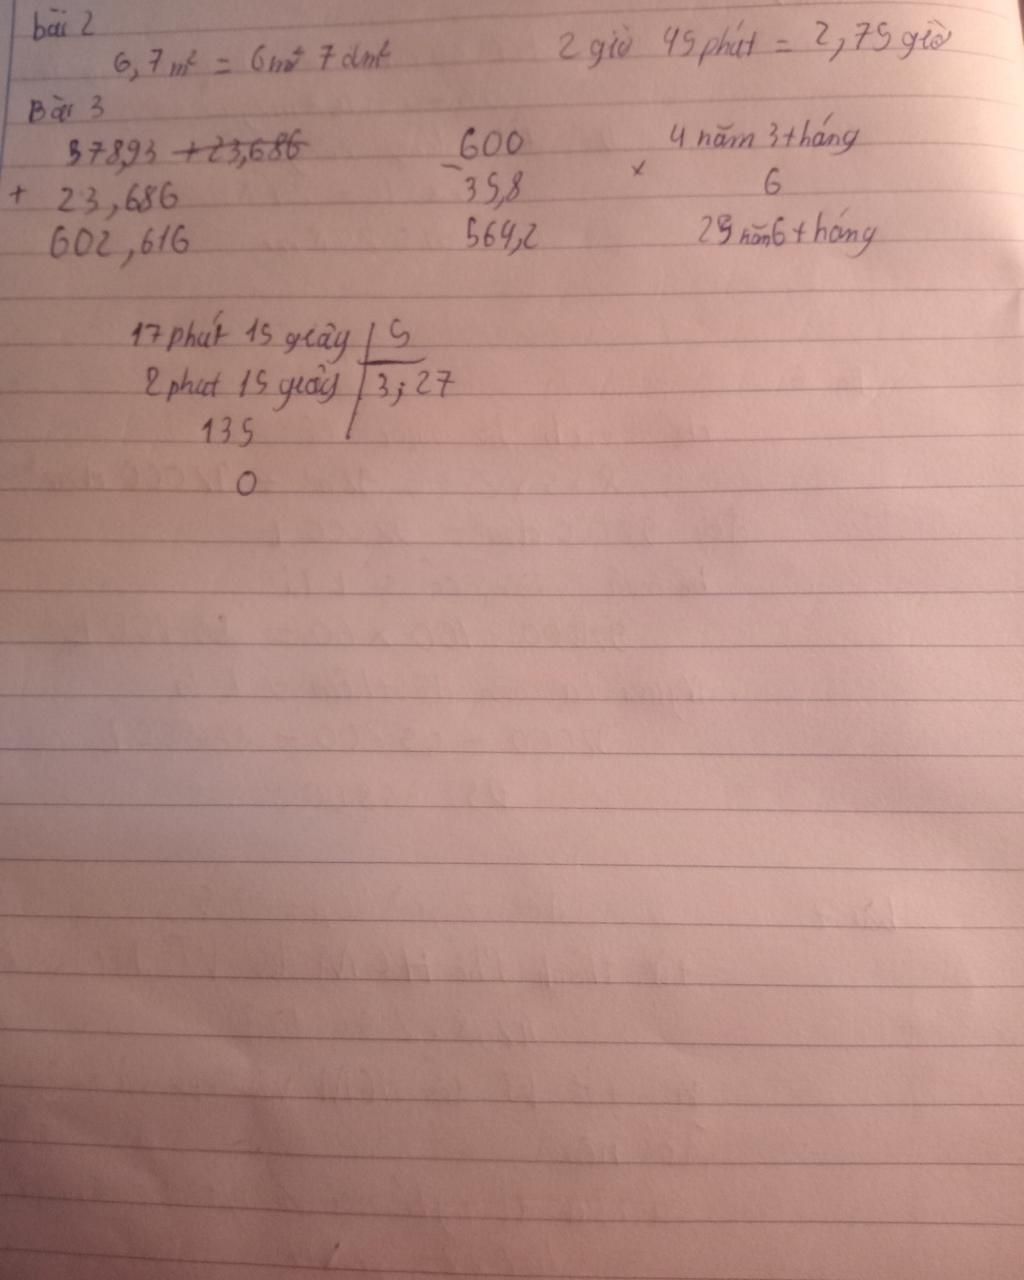 bài 2
6,7 m² = 6 m² 7 dm² 2 giờ 45 phút = 2,75 giờ
Bài 3
578,93 + 23,686 600 4 năm 3 tháng
+ 23,686 - 35,8 × 6
602,616 564,2 25 năm 6 tháng
17 phút 15 giây 5
2 phút 15 giây 3; 27
135
0